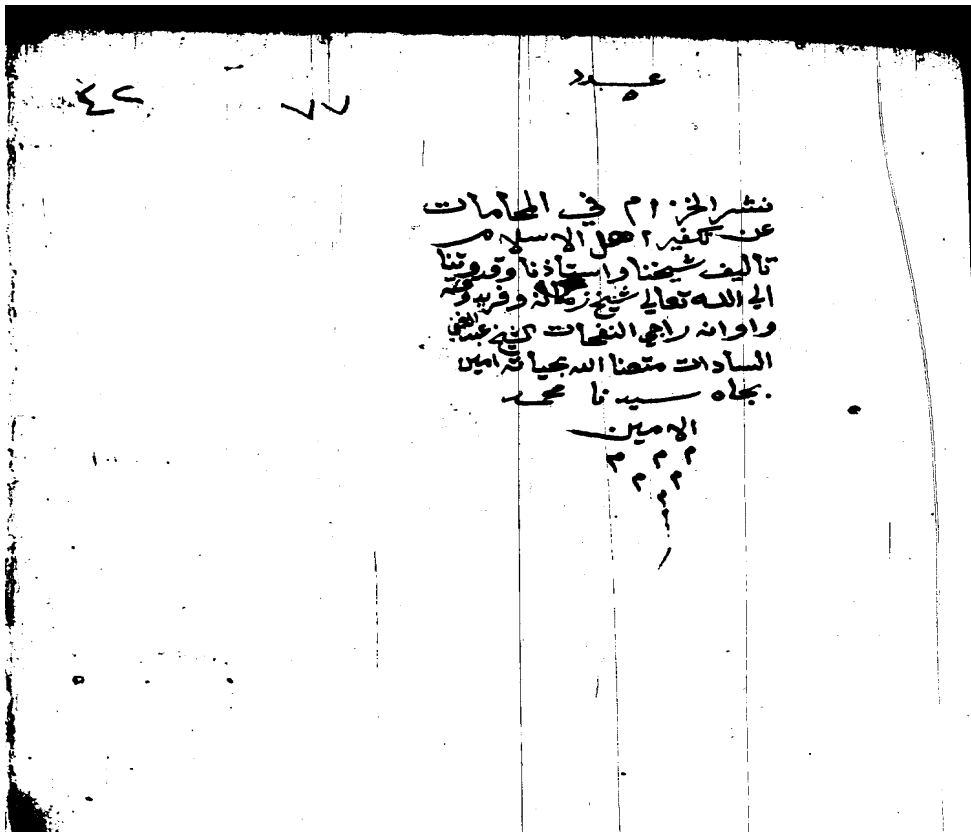 عبود
٧٧
٤٢
نشر الخزام في المحامات
عن تكفير اهل الاسلام
تاليف شيخنا واستاذنا وقدوتنا
الي الله تعالي شيخ زمانه وفريد وقته
واوانه راجي النفحات الشيخ عبد الغني
السادات متعنا الله بحياته امين
بجاه سيدنا محمد
الامين
م م م
م م
م